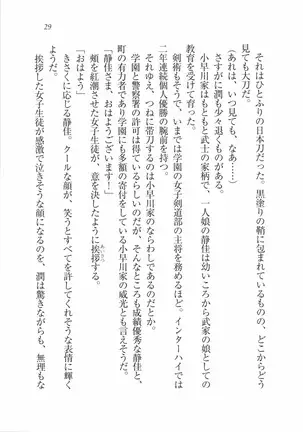 29
それはひとふりの日本刀だった。黒塗りの鞘に包まれているものの、どこからどう
見ても大刀だ。
（あれは、いつ見ても、なあ……）
さすがに潤も少々退くものがある。
小早川家はもともと武士の家柄で、一人娘の静佳は幼いころから武家の娘としての
教育を受けてきた。
剣術もそうで、いまでは学園の女子剣道部の主将を務めるほど。インターハイでは
二年連続個人優勝の腕前を持つ。
それゆえ、つねに帯刀するのは小早川家のならわしであるのだとか。
学園と警察署の許可は得ているらしいのだが、そんなところも成績優秀な静佳と、
町の有力者であり学園にも多額の寄付をしている小早川家の威光とも言えそうだ。
「静佳さま、おはようございます！」
頬を紅潮させた女子生徒が、意を決したように挨拶する。
あいさつ
「おはよう」
きさくに応じる静佳。クールな顔が、笑うとすべてを許してくれそうな表情に輝く。
挨拶した女子生徒が感激で泣きそうな顔になるのを、潤は驚きながらも、無理もな
ようだ。